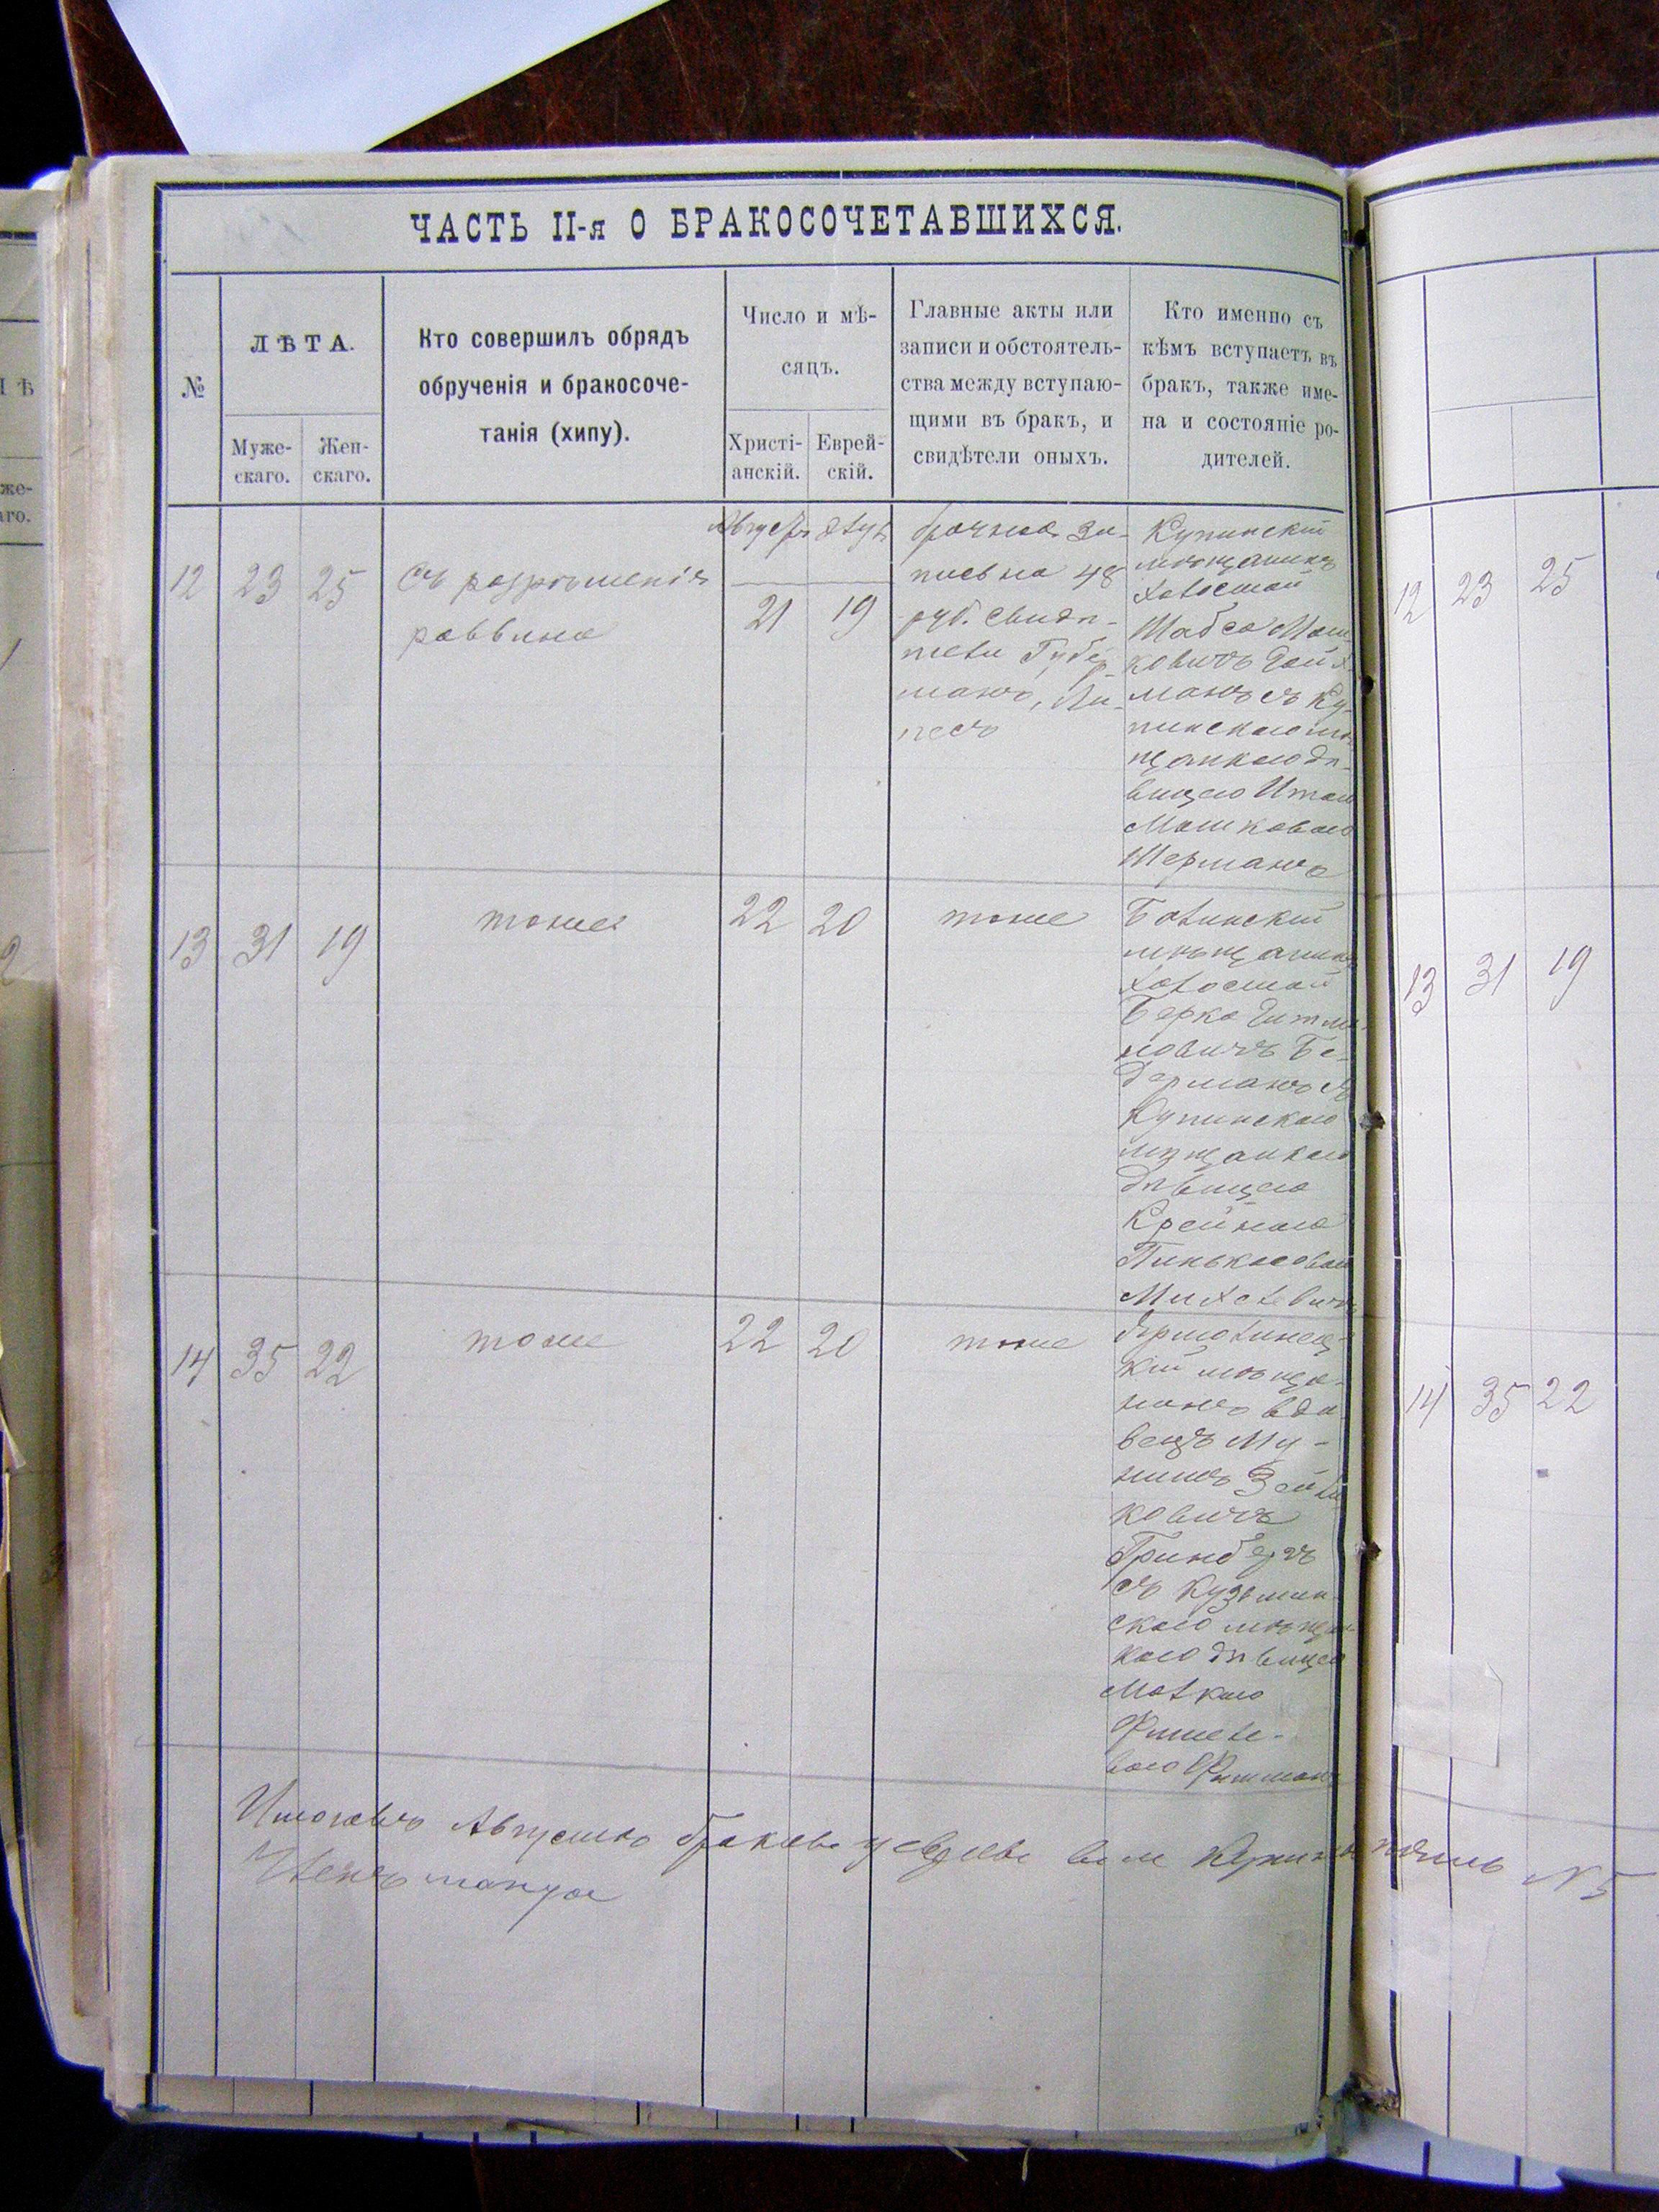 ЧАСТЬ II-я О БРАКОСОЧЕТАВШИХСЯ.
№
ЛѢТА.
Муже-
скаго.
Жен-
скаго.
Кто совершилъ обрядъ
обрученія и бракосоче-
танія (хипу).
Число и мѣ-
сяцъ.
Христі-
анскій.
Еврей-
скій.
Главные акты или
записи и обстоятель-
ства между вступаю-
щими въ бракъ, и
свидѣтели оныхъ.
Кто именно съ
кѣмъ вступаетъ въ
бракъ, также име-
на и состояніе ро-
дителей.
12
23
25
Съ разрѣшенія
раввина
21
19
брачная за-
пись на 48
руб. Свидѣ-
тели Губер-
манъ, Ли-
песъ
Купинскій
мѣщанинъ
холостой
Шабса Мош
ковичъ
манъ съ Ку-
пинскою мѣ
щанкою дѣ-
вицею Итою
Мошковою
Шерманъ
13
31
19
тоже
22
20
тоже
мѣщанинъ
холостой
Берко
новичъ Бе-
дерманъ съ
Купинскою
мѣщанкою
дѣвицею
Крейною
Пинькасовою
Михелевичъ
14
35
22
тоже
22
20
тоже
Ярмолинец-
кій мѣща-
нинъ вдо-
вецъ Му-
нишъ
ковичъ
Гринбергъ
съ Кузьмин
скою мѣщан
кою дѣвицею
Малкою
Фишеле-
вою Фишманъ
Августъ браковъ у евреевъ въ м Купинѣ пять № 5
12
23
25
13
31
19
14
35
22